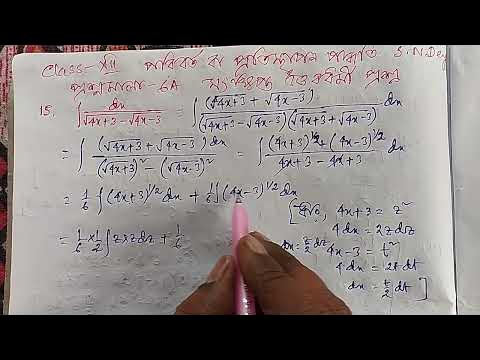 Class-XII পরিবর্ত বা প্রতিস্থাপন পদ্ধতি S.N.Dey
প্রশ্নমালা-6A সংক্ষিপ্ত উত্তরধর্মী প্রশ্ন
15. ∫ dx/(√4x+3 − √4x−3) = ∫ (√4x+3 + √4x−3)/((√4x+3 − √4x−3)(√4x+3 + √4x−3)) dx
= ∫ (√4x+3 + √4x−3)/((√4x+3)² − (√4x−3)²) dx = ∫ ((4x+3)^1/2 + (4x−3)^1/2)/(4x+3 − 4x+3) dx
= 1/6 ∫ (4x+3)^1/2 dx + 1/6 ∫ (4x−3)^1/2 dx
[ ধরি, 4x+3 = z²
4dx = 2zdz
= 1/6 × 1/2 ∫ z×zdz + 1/6
dx = z/2 dz 4x−3 = t²
4dx = 2tdt
dx = t/2 dt ]